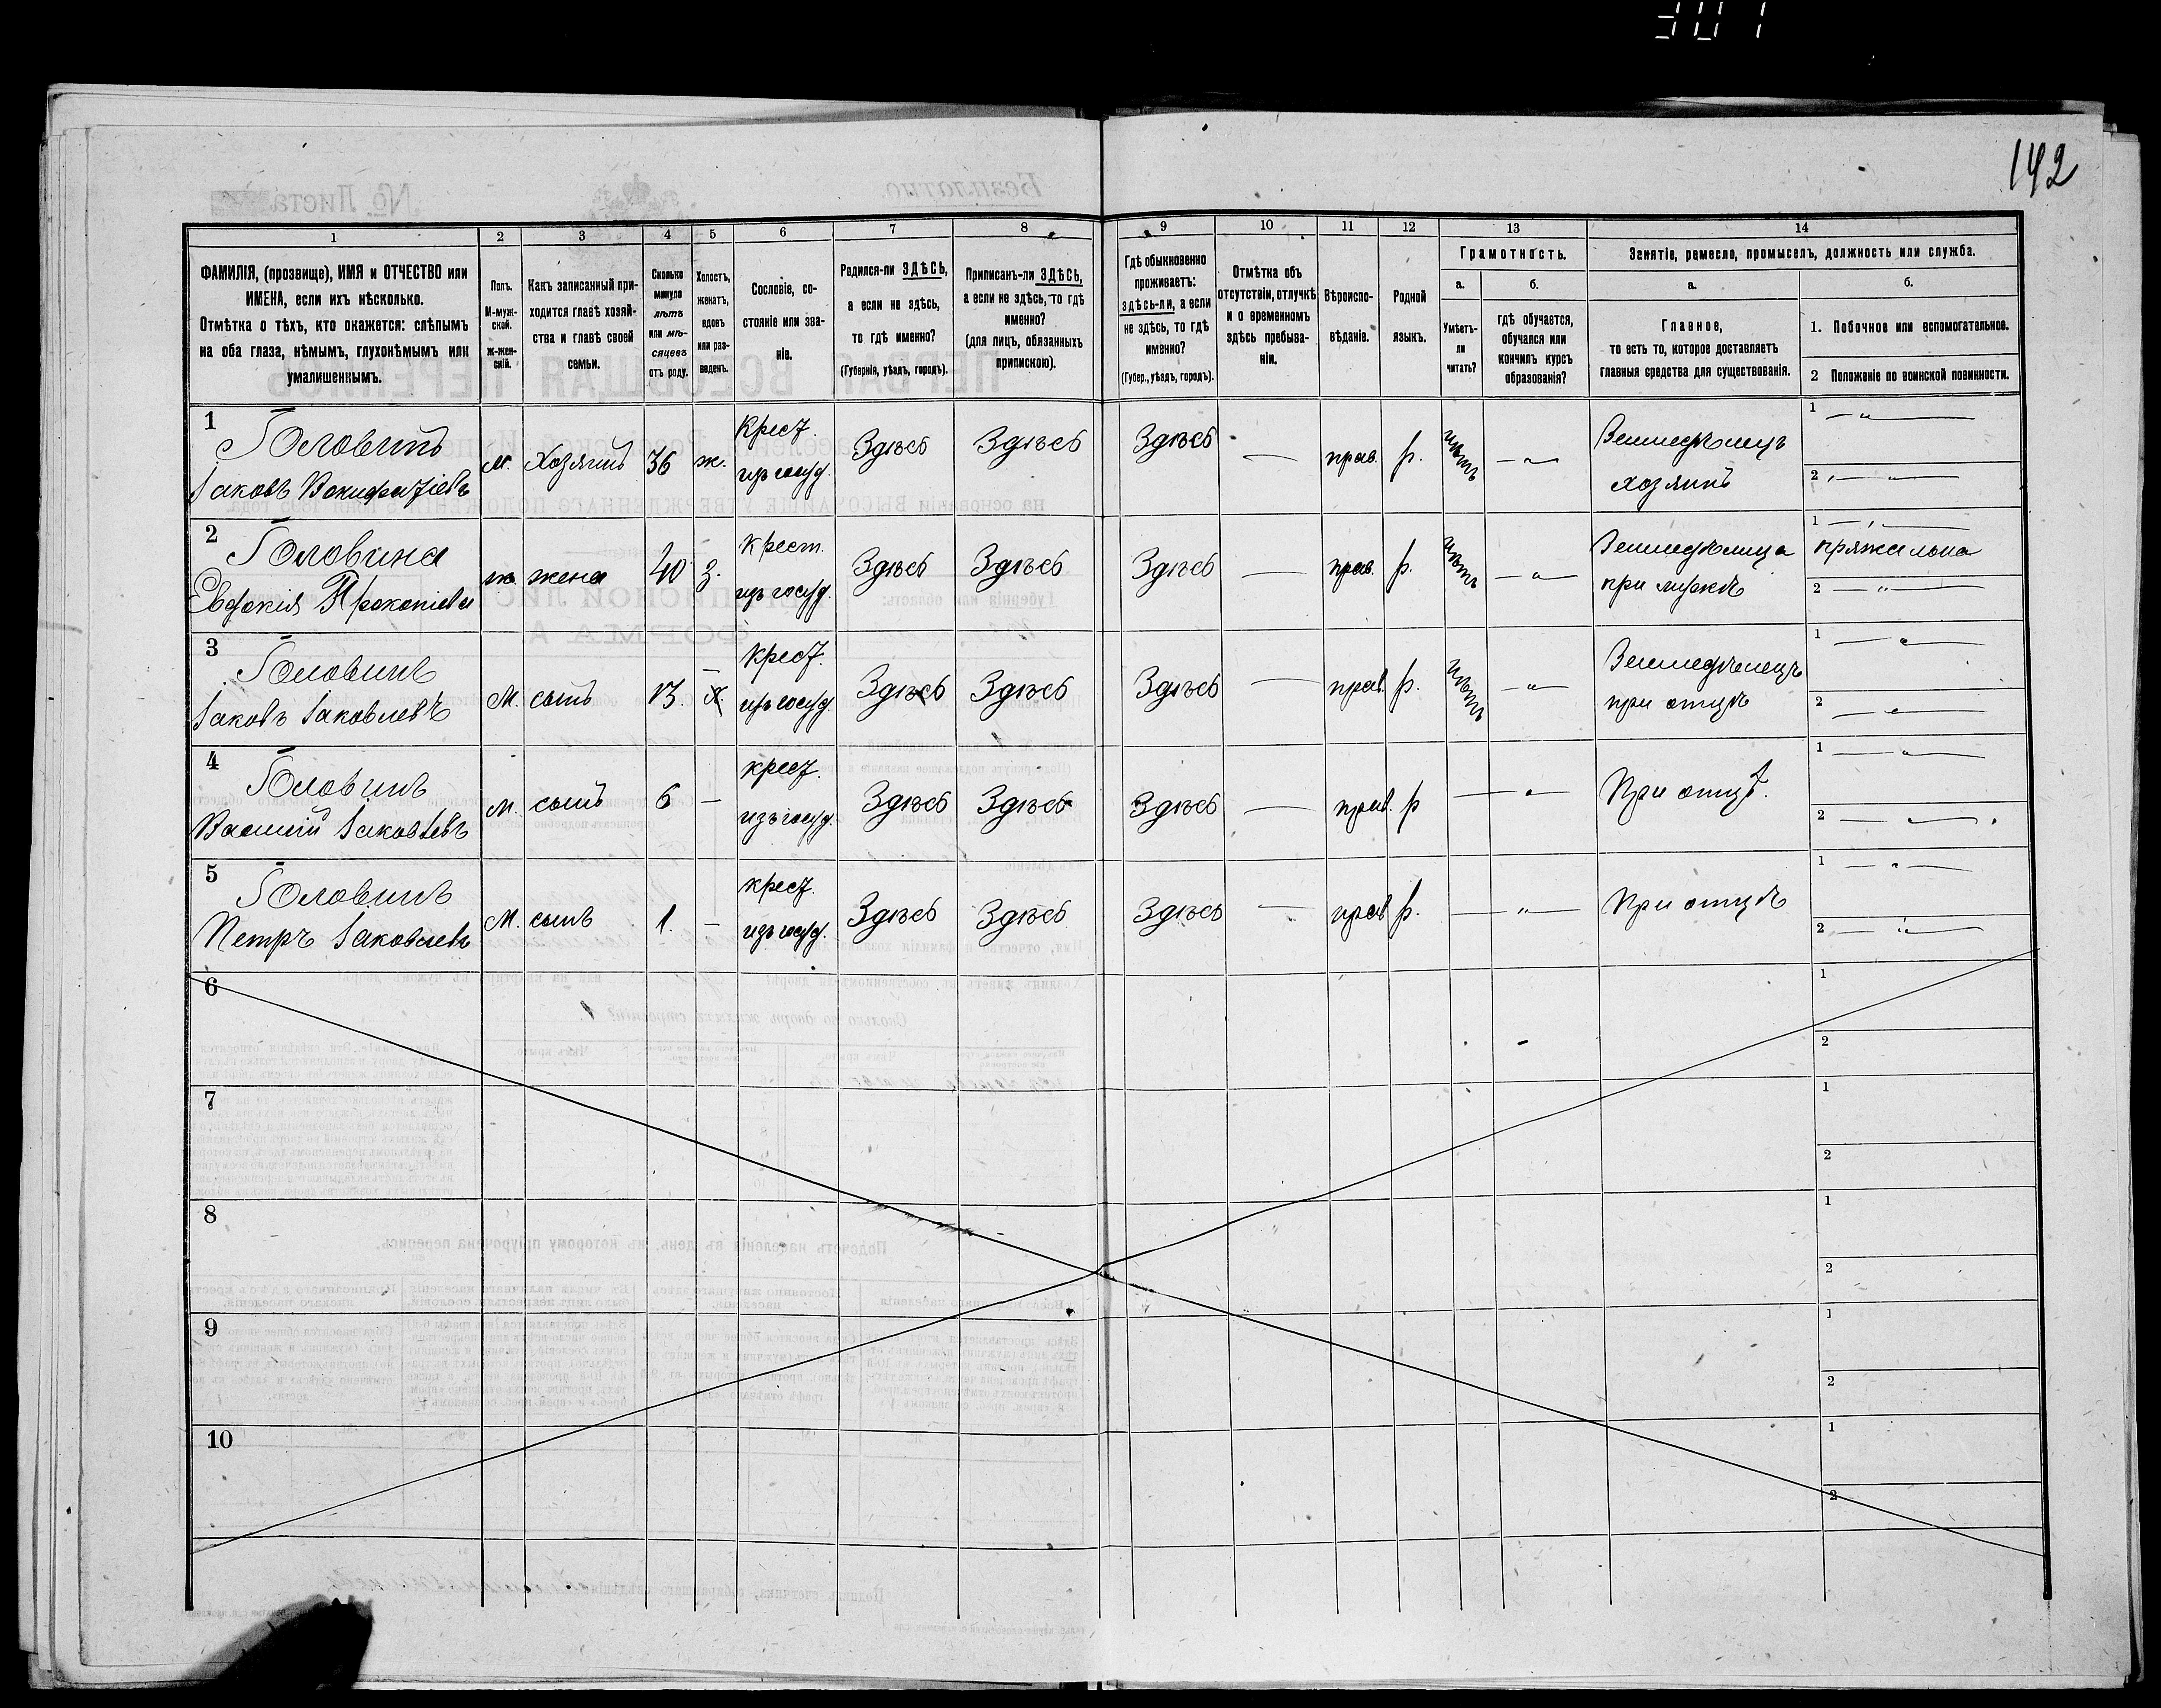 301
142
1 2 3 4 5 6 7 8 9 10 11 12 13 14
ФАМИЛІЯ, (прозвище), ИМЯ и ОТЧЕСТВО или
ИМЕНА, если ихъ нѣсколько.
Отмѣтка о тѣхъ, кто окажется: слѣпымъ
на оба глаза, нѣмымъ, глухонѣмымъ или
умалишеннымъ.
Полъ.
М-муж-
ской.
ж-жен-
скій.
Какъ записанный при-
ходится главѣ хозяй-
ства и главѣ своей
семьи.
Сколько
минуло
лѣтъ
или мѣ-
сяцевъ
отъ роду.
Холостъ,
женатъ,
вдовъ
или раз-
веденъ.
Сословіе, со-
стояніе или зва-
ніе.
Родился-ли ЗДѢСЬ,
а если не здѣсь,
то гдѣ именно?
(Губернія, уѣздъ, городъ).
Приписанъ-ли ЗДѢСЬ,
а если не здѣсь, то гдѣ
именно?
(для лицъ, обязанныхъ
припискою).
Гдѣ обыкновенно
проживаетъ:
здѣсь-ли, а если
не здѣсь, то гдѣ
именно?
(Губер., уѣздъ, городъ).
Отмѣтка объ
отсутствіи, отлучкѣ
и о временномъ
здѣсь пребыва-
ніи.
Вѣроиспо-
вѣданіе.
Родной
языкъ.
Грамотность.
а.
Умѣетъ-
ли
читать?
б.
гдѣ обучается,
обучался или
кончилъ курсъ
образованія?
Занятіе, ремесло, промыселъ, должность или служба.
а.
Главное,
то есть то, которое доставляетъ
главныя средства для существованія.
б.
1. Побочное или вспомогательное.
2 Положеніе по воинской повинности.
1
Головинъ
Іаковъ
м. Хозяинъ 36 ж.
Крест.
изъ госуд.
Здѣсь Здѣсь Здѣсь — прав. р. нѣтъ — „ —
Земледѣлецъ
хозяинъ
1 — „ —
2 — „ —
2
Головина
Евдокія Прокопіева
ж. жена 40 з.
Крест.
изъ госуд.
Здѣсь Здѣсь Здѣсь — прав. р. нѣтъ — „ —
Земледѣлица
при мужѣ
1 — „ —
пряжа льна
2 — „ —
3
Головинъ
Іаковъ Іаковлевъ
М. сынъ 13. х.
Крест.
изъ госуд.
Здѣсь Здѣсь Здѣсь — прав. р. нѣтъ — „ —
Земледѣлецъ
при отцѣ
1 — „ —
2 — „ —
4
Головинъ
Василій Іаковлевъ
М. сынъ 6 —
крест.
изъ госуд.
Здѣсь Здѣсь Здѣсь — прав. р — „ —
При отцѣ.
1 — „ —
2 — „ —
5
Головинъ
Петръ Іаковлевъ
М. сынъ 1. —
крест.
изъ госуд.
Здѣсь Здѣсь Здѣсь — прав р. — „ —
При отцѣ
1 — „ —
2 — „ —
6
1
2
7
1
2
8
1
2
9
1
2
10
1
2